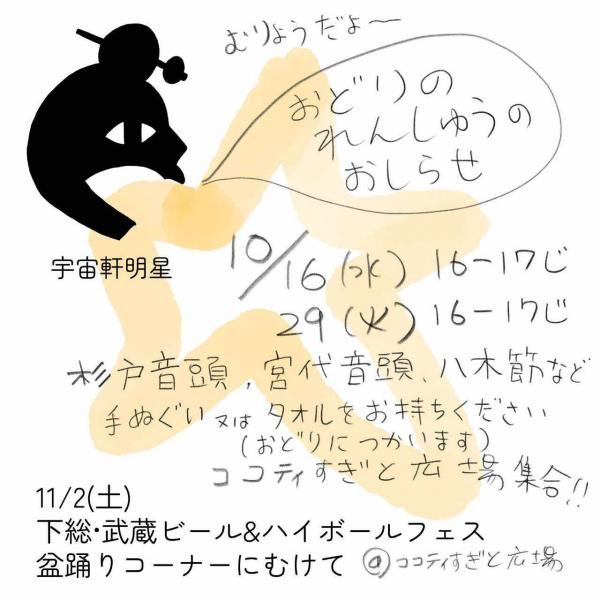 むりょうだよ〜
おどりの
れんしゅうの
おしらせ
宇宙軒明星
10/16(水) 16-17じ
29(火) 16-17じ
杉戸音頭、宮代音頭、八木節など
手ぬぐい又はタオルをお持ちください
(おどりにつかいます)
ココティすぎと広場集合!!
11/2(土)
下総・武蔵ビール&ハイボールフェス
盆踊りコーナーにむけて @ココティすぎと広場